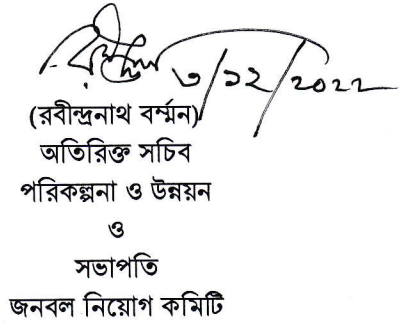 ৩/১২/২০২২
(রবীন্দ্রনাথ বর্ম্মন)
অতিরিক্ত সচিব
পরিকল্পনা ও উন্নয়ন
ও
সভাপতি
জনবল নিয়োগ কমিটি